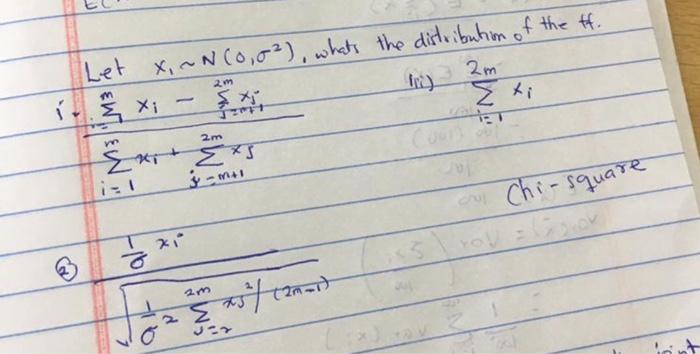 Let x₁ ~ N(0,σ²), whats the distribution of the ff.
i. \frac{\sum_{i=1}^{m} x_i - \sum_{j=m+1}^{2m} x_j}{\sum_{i=1}^{m} x_i + \sum_{j=m+1}^{2m} x_j}
iii) \sum_{i=1}^{2m} x_i
Chi-square
② \frac{\frac{1}{σ} x_i}{\sqrt{\frac{1}{σ^2} \sum_{j=2}^{2m} x_j^2 / (2m-1)}}